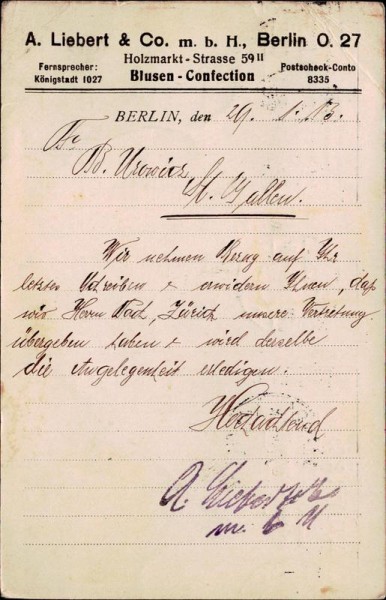 A. Liebert & Co. m. b. H., Berlin O. 27
Holzmarkt - Strasse 59 II
Fernsprecher:
Königstadt 1027
Blusen - Confection
Postscheck-Conto
8335
BERLIN, den 29. 1. 13.
Fr
B. Urowicz
St. Gallen.
Wir nehmen Bezug auf Ihr
letztes Schreiben & erwidern Ihnen, daß
wir Herrn, Zürich, unsere Vertretung
übergeben haben & wird derselbe
die Angelegenheit erledigen.
Hochachtend
A. Liebert & Co
m. b. H